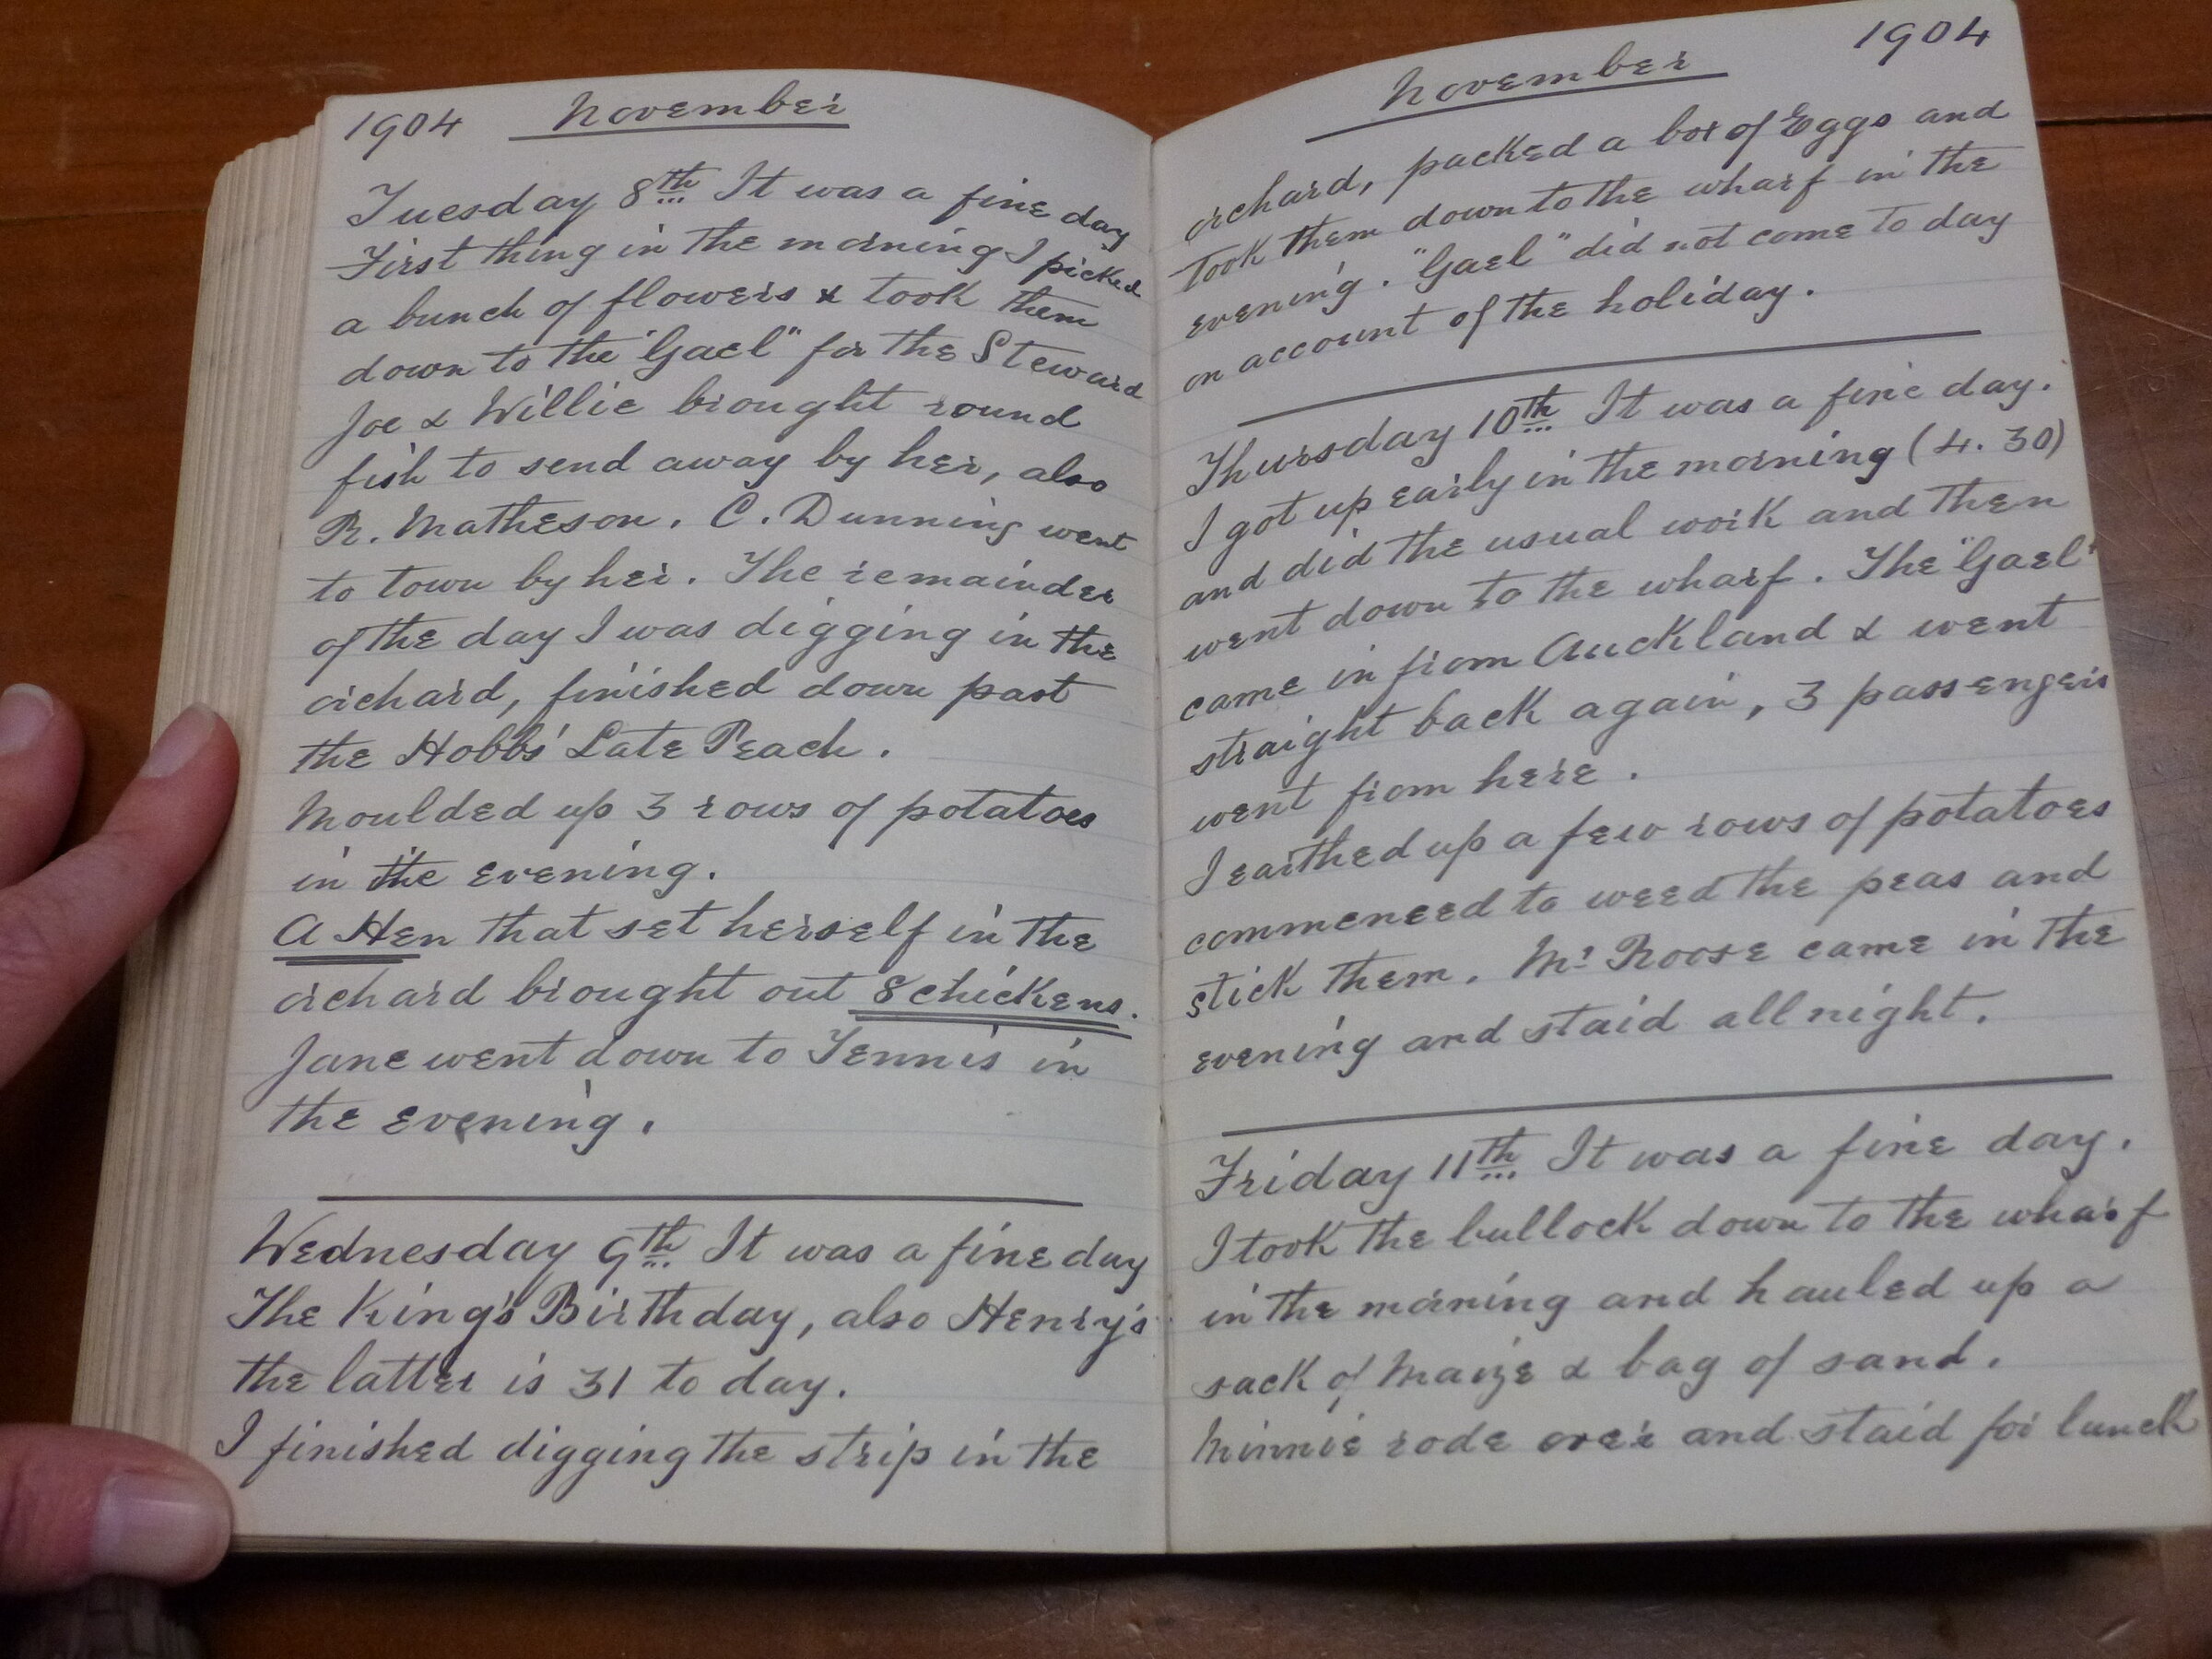 1904 November
Tuesday 8th It was a fine day
First thing in the morning I picked
a bunch of flowers & took them
down to the "Gael" for the Steward
Joe & Willie brought round
fish to send away by her, also
R. Matheson. C. Dunning went
to town by her. The remainder
of the day I was digging in the
orchard, finished down past
the Hobbs' Late Peach.
Moulded up 3 rows of potatoes
in the evening.
A Hen that set herself in the
orchard brought out 8 chickens.
Jane went down to Tennis in
the evening.
Wednesday 9th It was a fine day
The King's Birthday, also Henry's
the latter is 31 to day.
I finished digging the strip in the
November 1904
orchard, packed a box of Eggs and
took them down to the wharf in the
evening. "Gael" did not come to day
on account of the holiday.
Thursday 10th It was a fine day.
I got up early in the morning (4.30)
and did the usual work and then
went down to the wharf. The "Gael"
came in from Auckland & went
straight back again, 3 passengers
went from here.
I earthed up a few rows of potatoes
commenced to weed the peas and
stick them. Mr Roose came in the
evening and staid all night.
Friday 11th It was a fine day.
I took the bullock down to the wharf
in the morning and hauled up a
sack of Maize & bag of sand.
Minnie rode over and staid for lunch